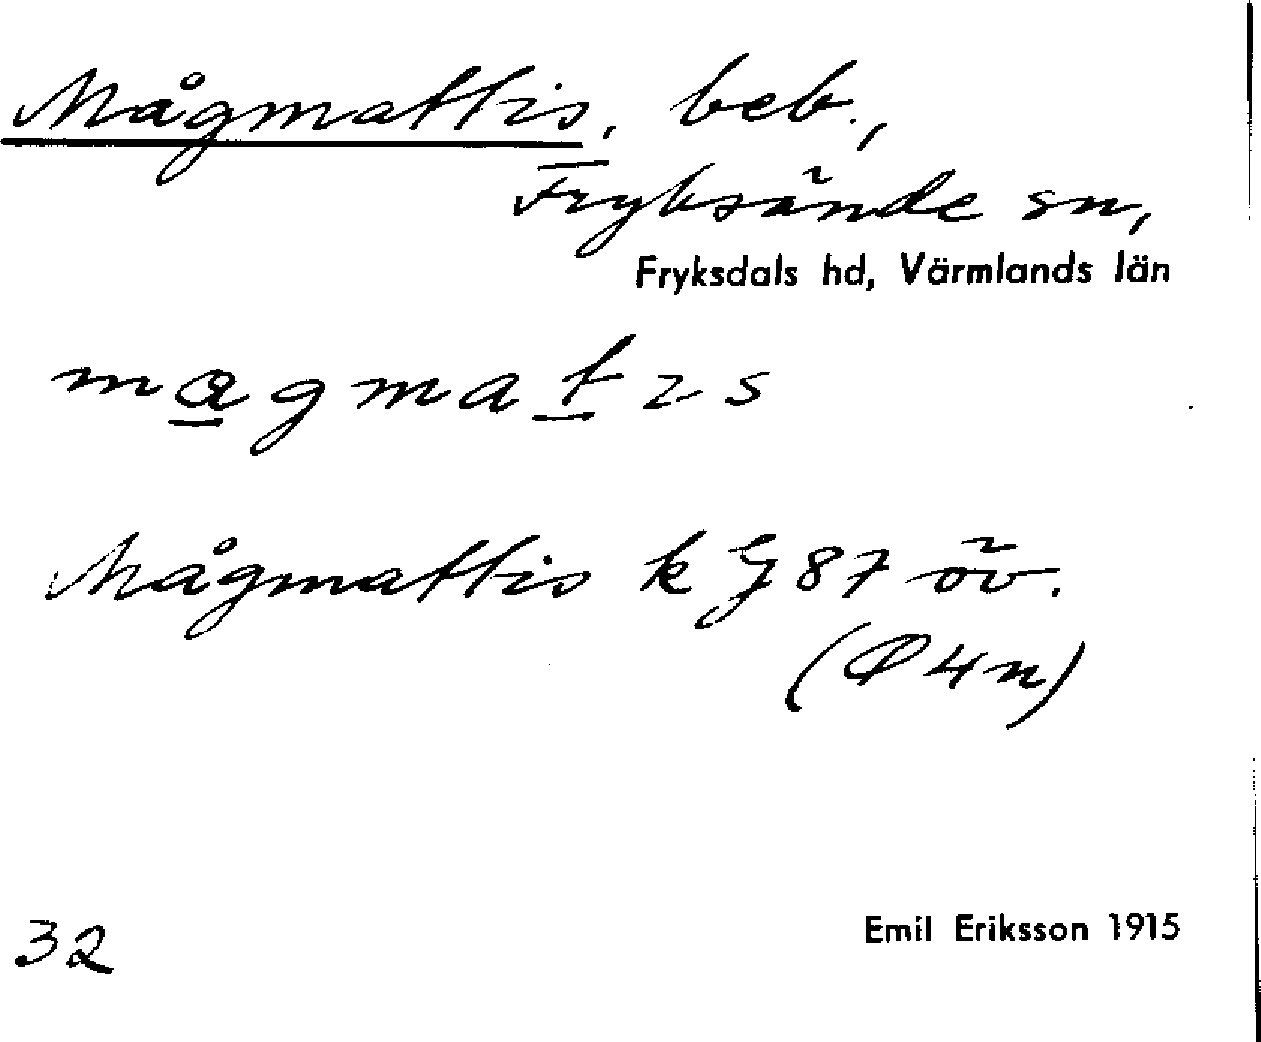 Mågmattis, beb.,
Fryksände sn,
Fryksdals hd, Värmlands län
magmatıs
Mågmattis k G 87 öv.
(Ø 4n)
32
Emil Eriksson 1915